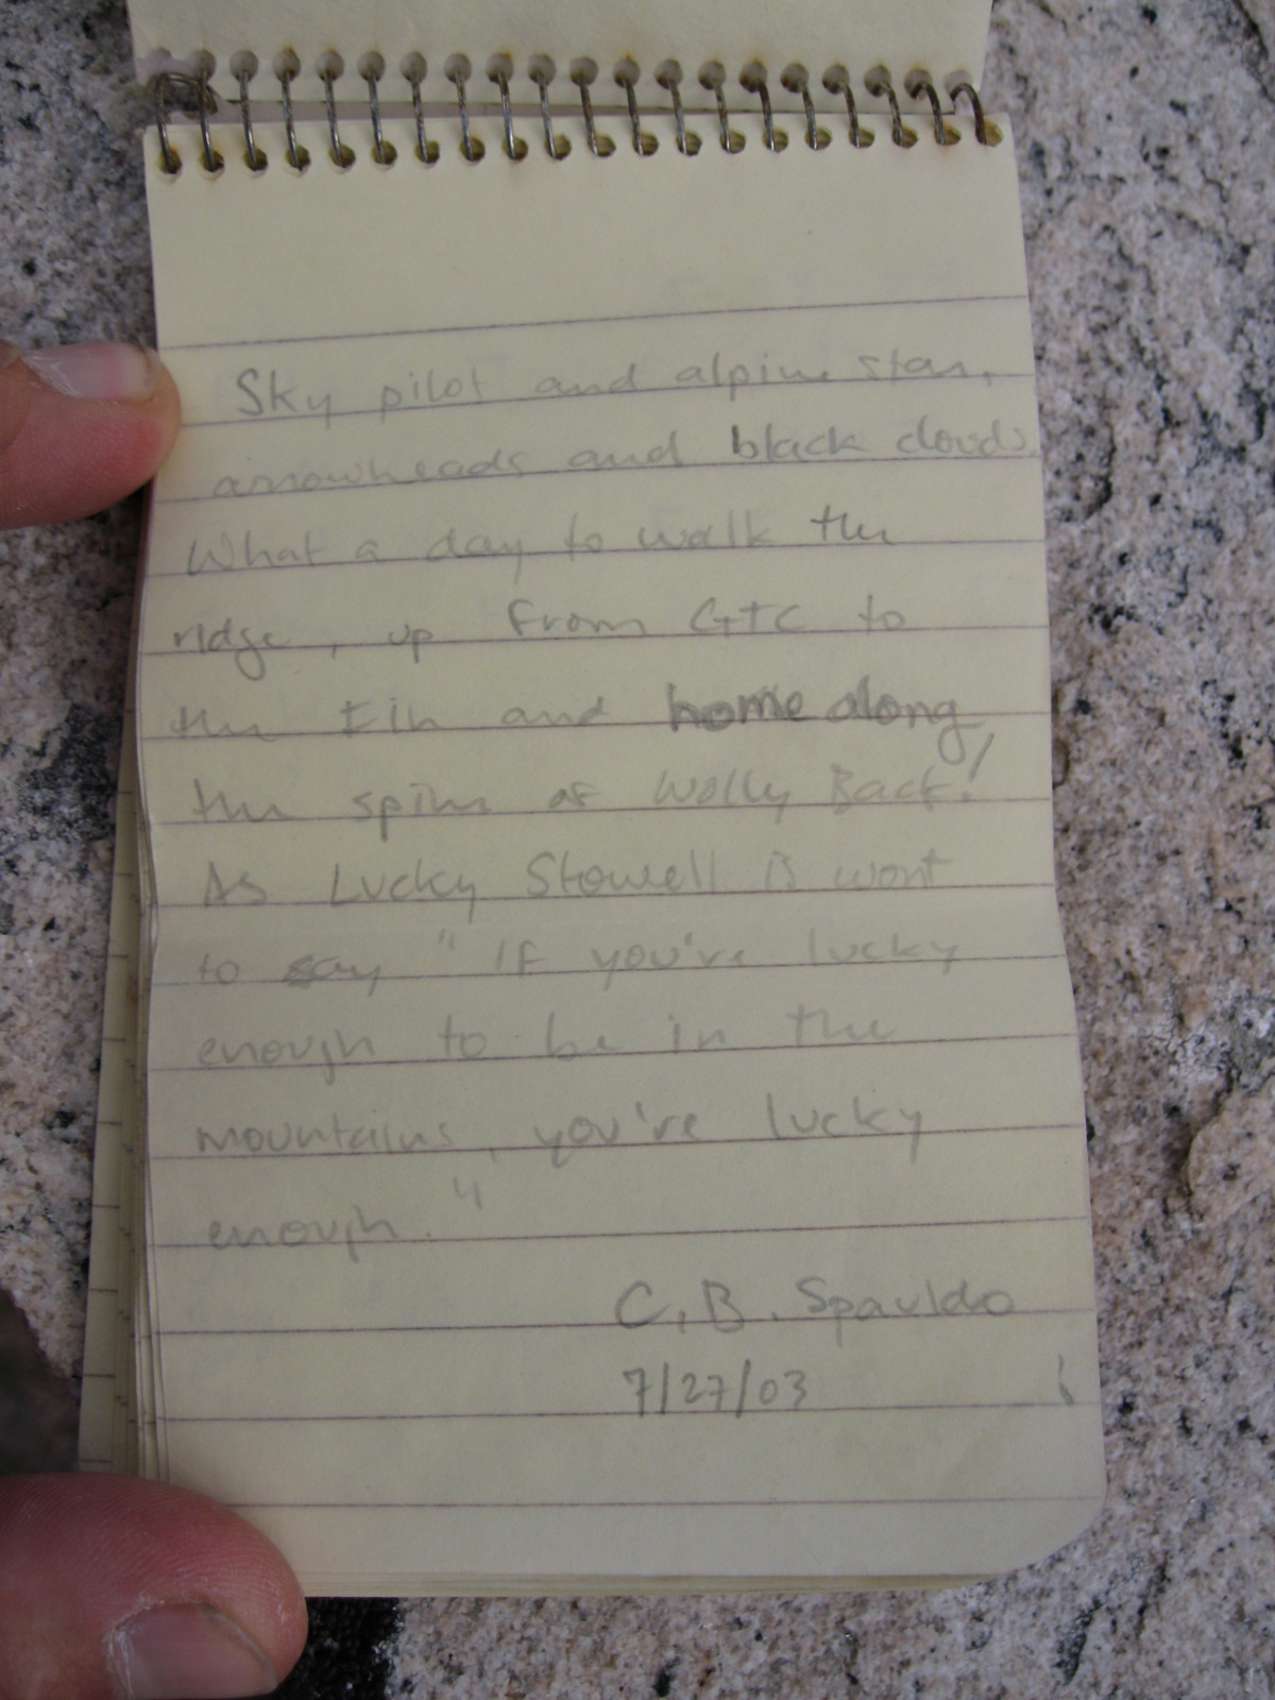 Sky pilot and alpine stars,
arrowheads and black clouds.
What a day to walk the
ridge, up from GTC to
the and home along
the spine of Wolly Back!
As Lucky Stowell is wont
to say "If you're lucky
enough to be in the
mountains, you're lucky
enough."
C.B. Spauldo
7/27/03